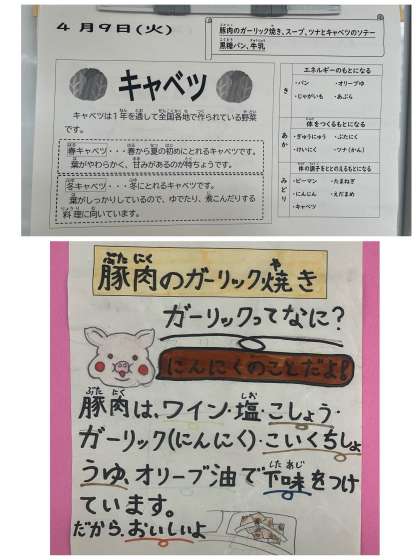 4月9日(火)
豚肉のガーリック焼き、スープ、ツナとキャベツのソテー
黒糖パン、牛乳
キャベツ
キャベツは1年を通して全国各地で作られている野菜
です。
春キャベツ・・・春から夏の初めにとれるキャベツです。
葉がやわらかく、甘みがあるのが特ちょうです。
冬キャベツ・・・冬にとれるキャベツです。
葉がしっかりしているので、ゆでたり、煮こんだりする
料理に向いています。
エネルギーのもとになる
き
・パン ・オリーブゆ
・じゃがいも ・あぶら
体をつくるもとになる
あか
・ぎゅうにゅう ・ぶたにく
・けいにく ・ツナ(かん)
体の調子をととのえるもとになる
みどり
・ピーマン ・たまねぎ
・にんじん ・えだまめ
・キャベツ
豚肉のガーリック焼き
ガーリックってなに?
にんにくのことだよ!
豚肉は、ワイン・塩・こしょう・
ガーリック(にんにく)・こいくちしょ
うゆ、オリーブ油で下味をつけ
ています。
だから、おいしいよ